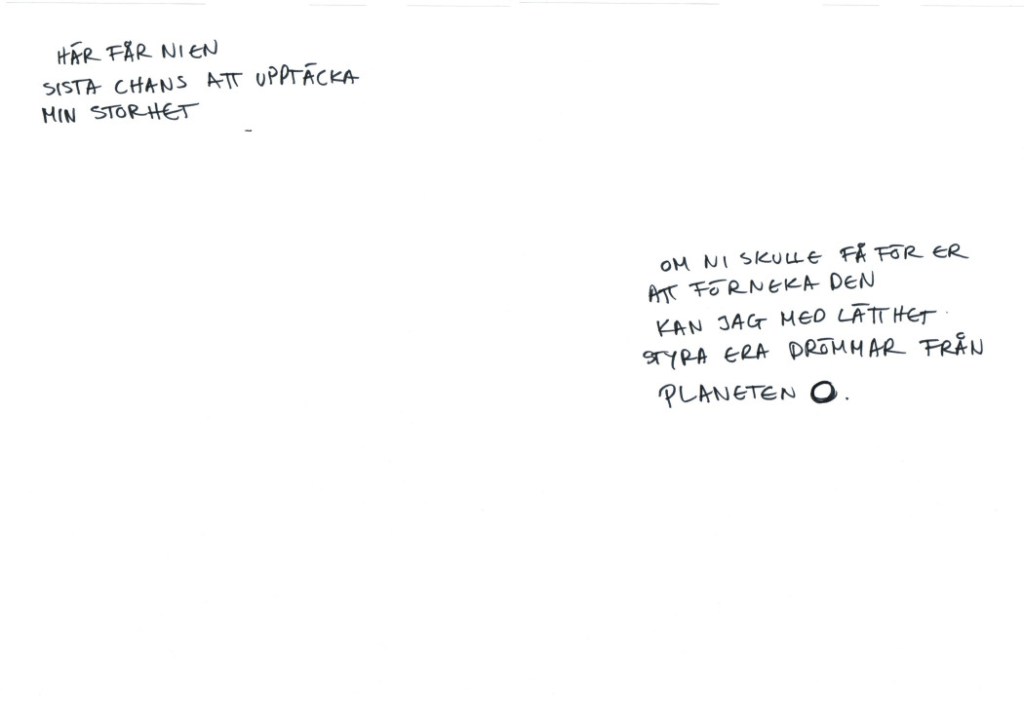 HÄR FÅR NI EN
SISTA CHANS ATT UPPTÄCKA
MIN STORHET
OM NI SKULLE FÅ FÖR ER
ATT FÖRNEKA DEN
KAN JAG MED LÄTTHET
STYRA ERA DRÖMMAR FRÅN
PLANETEN O.